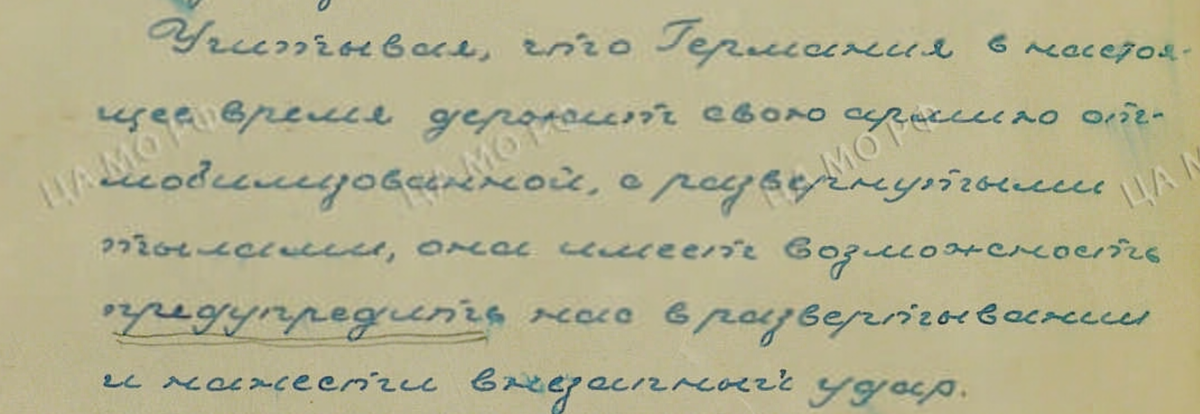 Учитывая, что Германия в настоя-
щее время держит свою армию от-
мобилизованной, с развернутыми
тылами, она имеет возможность
предупредить нас в развертывании
и нанести внезапный удар.
ЦАМО РФ
ЦАМО РФ
ЦАМО РФ
ЦАМ